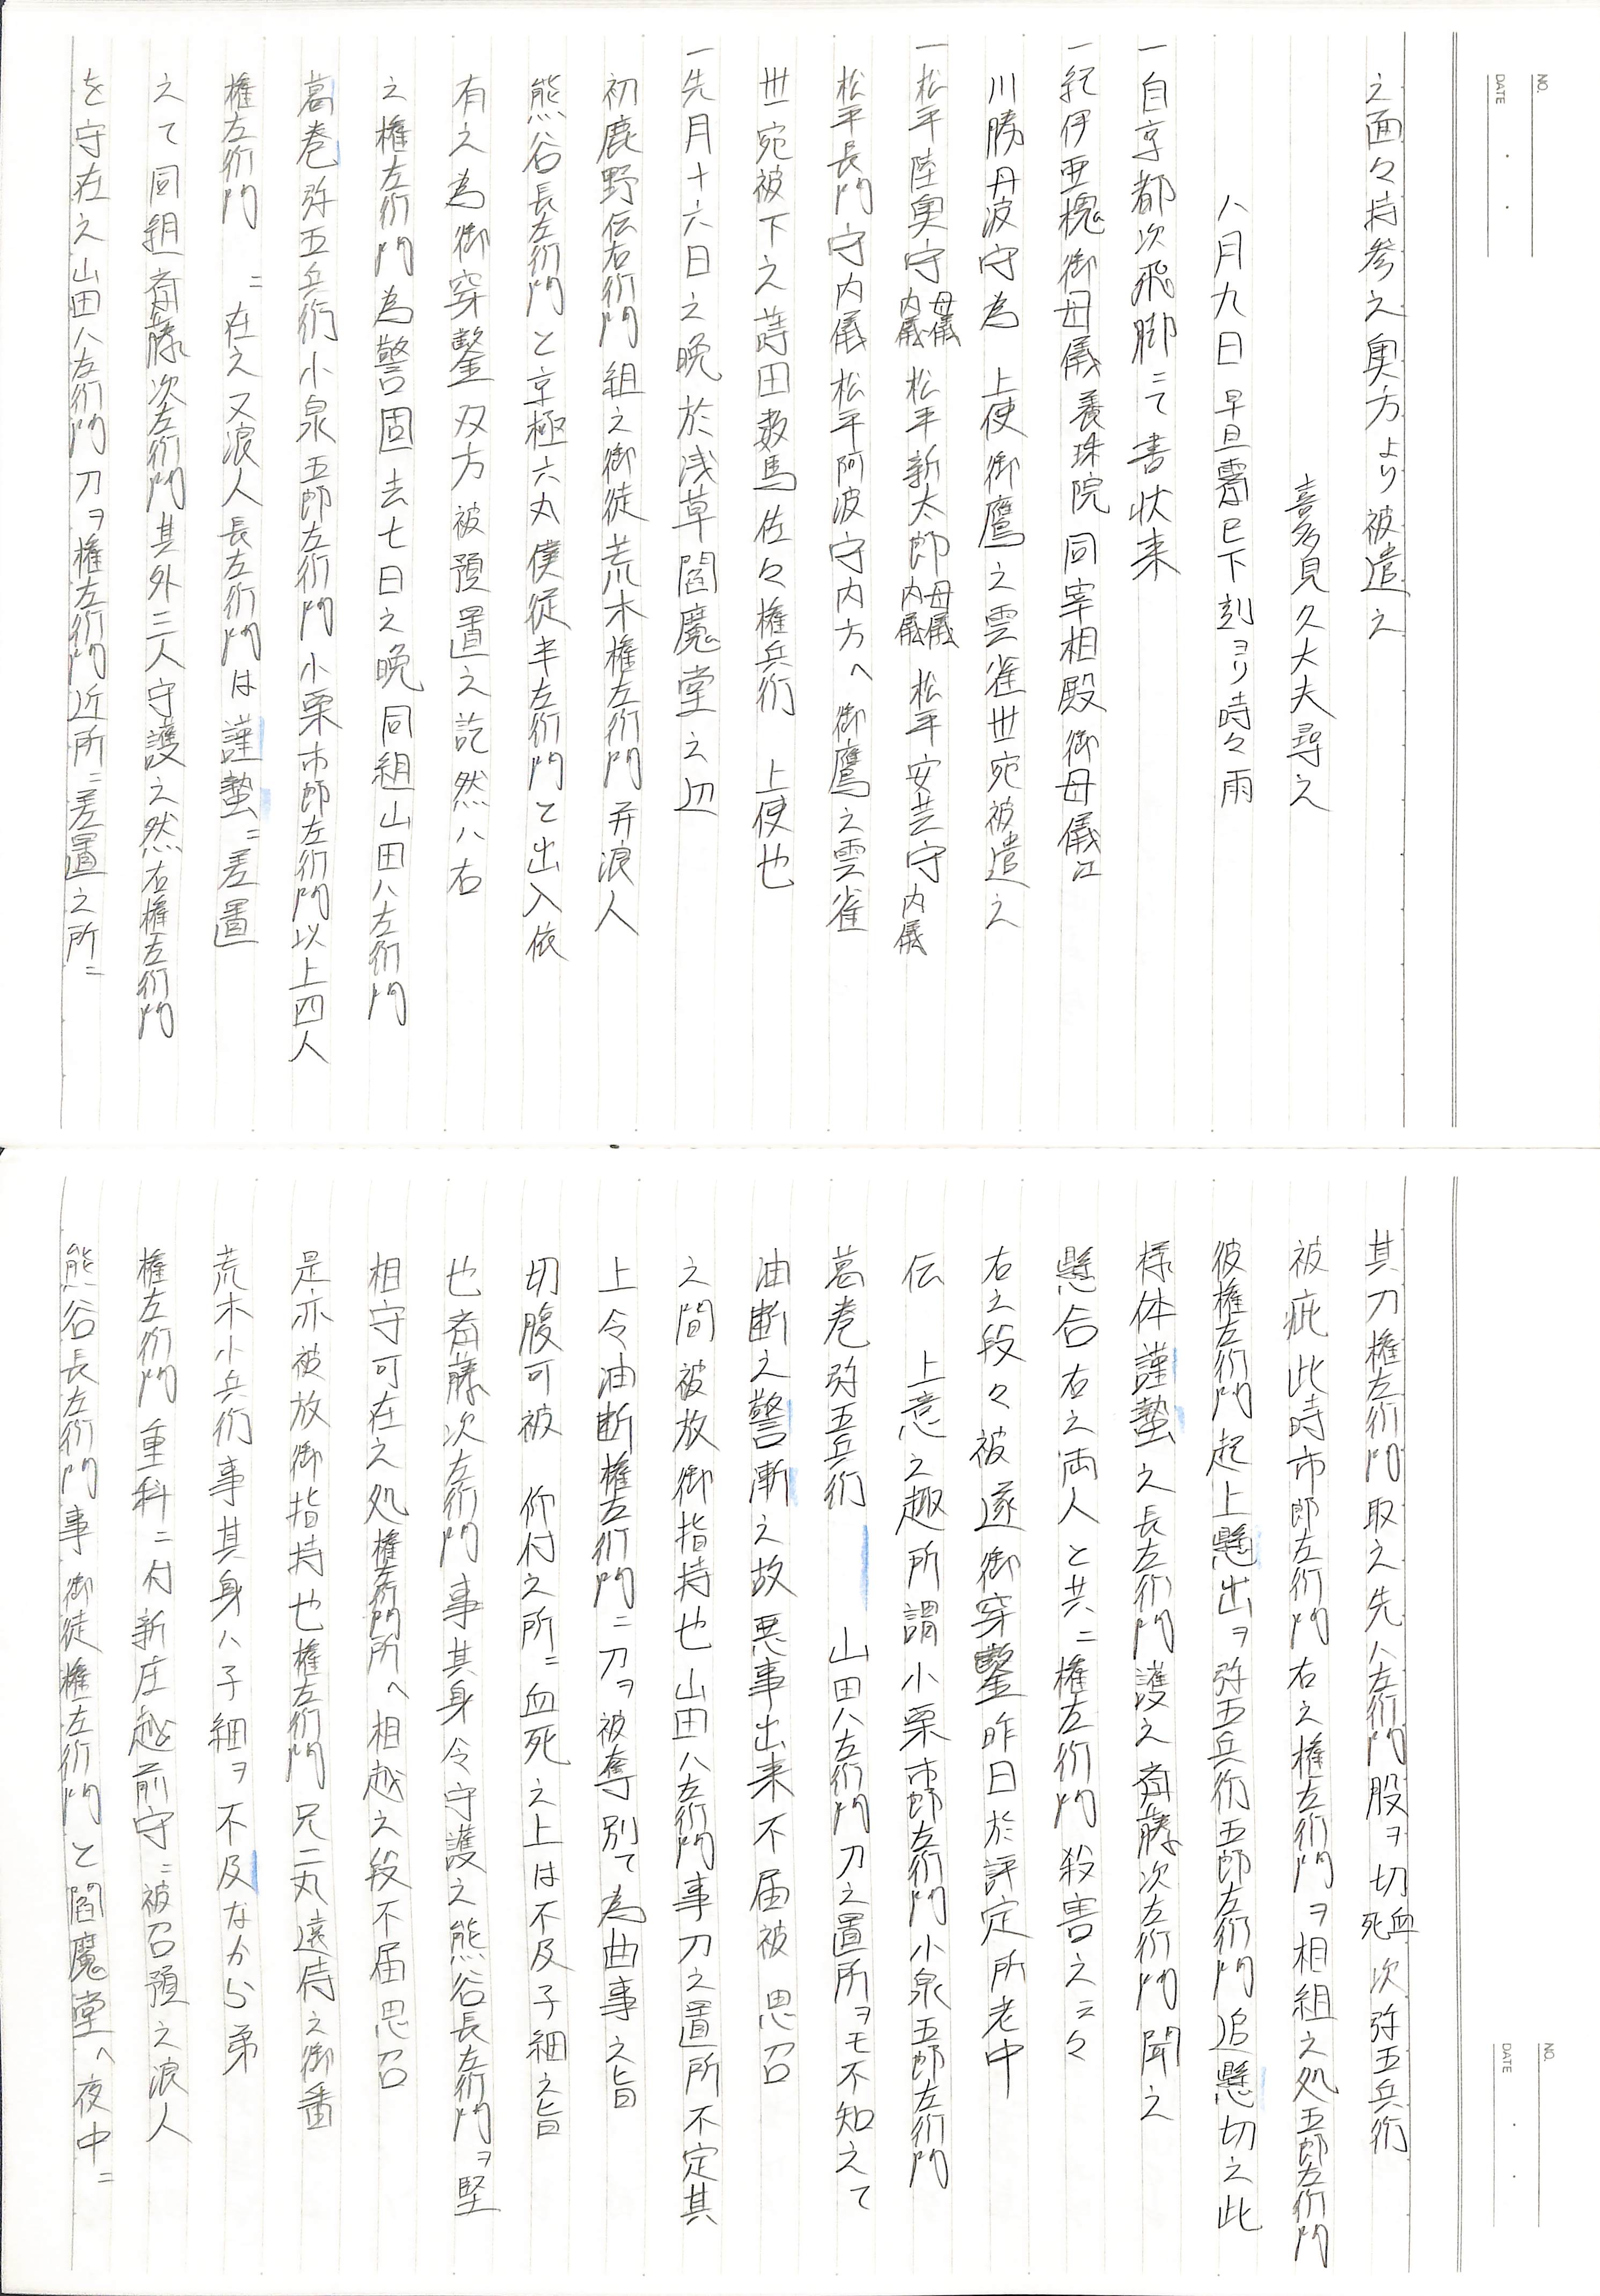 之面々持参之奥方より被遣之
喜多見久大夫尋之
八月九日 早旦霽巳下刻ヨリ時々雨
一自京都次飛脚ニて書状来
一紀伊亜槐御母儀養珠院同宰相殿御母儀江
川勝丹波守為 上使御鷹之雲雀卅宛被遣之
一松平陸奥守母儀内儀松平新太郎母儀内儀松平安芸守内儀
松平長門守内儀松平阿波守内方へ御鷹之雲雀
卅宛被下之蒔田数馬佐々権兵衛 上使也
一先月十六日之晩於浅草閻魔堂之辺
初鹿野伝右衛門組之御徒荒木権左衛門并浪人
熊谷長左衛門と京極六丸僕従半左衛門と出入依
有之為御穿鑿双方被預置之訖然ハ右
之権左衛門為警固去七日之晩同組山田八左衛門
葛巻弥五兵衛小泉五郎左衛門小栗市郎左衛門以上四人
権左衛門 ニ在之又浪人長左衛門は謹蟄ニ差置
之て同組斎藤次左衛門其外三人守護之然右権左衛門
を守在之山田八左衛門刀ヲ権左衛門近所ニ差置之所ニ
其刀権左衛門取之先八左衛門股ヲ切血死次弥五兵衛
被疵此時市郎左衛門右之権左衛門ヲ相組之処五郎左衛門
彼権左衛門起上懸出ヲ弥五兵衛五郎左衛門追懸切之此
様体謹蟄之長左衛門護之斎藤次左衛門聞之
懸合右之両人と共ニ権左衛門殺害之云々
右之段々被遂御穿鑿昨日於評定所老中
伝 上意之趣所謂小栗市郎左衛門小泉五郎左衛門
葛巻弥五兵衛 山田八左衛門刀之置所ヲモ不知之て
油断之警漸之故悪事出来不届被 思召
之間被放御指持也山田八左衛門事刀之置所不定其
上令油断権左衛門ニ刀ヲ被奪別て為曲事之旨
切腹可被 仰付之所ニ血死之上は不及子細之旨
也斎藤次左衛門事其身令守護之熊谷長左衛門ヲ堅
相守可在之処権左衛門所へ相越之段不届思召
是亦被放御指持也権左衛門兄二丸遠侍之御番
荒木小兵衛事其身ハ子細ヲ不及なから弟
権左衛門重科ニ付新庄越前守ニ被召預之浪人
熊谷長左衛門事御徒権左衛門と閻魔堂へ夜中ニ
NO.
DATE
NO.
DATE